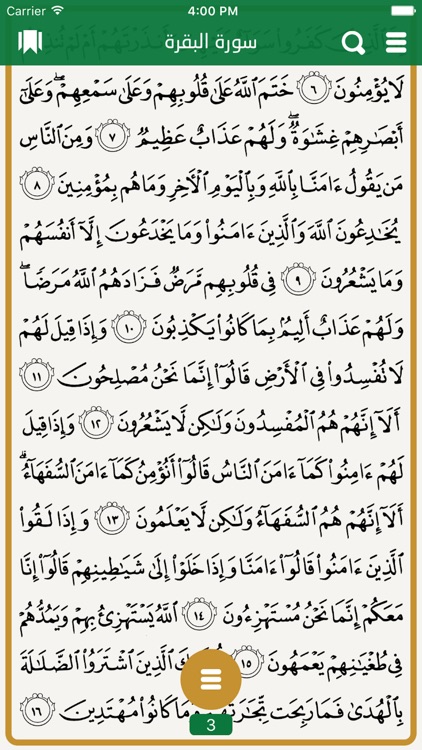 Carrier 4:00 PM 100%
سورة البقرة
لَا يُؤْمِنُونَ ٦ خَتَمَ ٱللَّهُ عَلَىٰ قُلُوبِهِمْ وَعَلَىٰ سَمْعِهِمْ ۖ وَعَلَىٰٓ
أَبْصَـٰرِهِمْ غِشَـٰوَةٌ ۖ وَلَهُمْ عَذَابٌ عَظِيمٌ ٧ وَمِنَ ٱلنَّاسِ
مَن يَقُولُ ءَامَنَّا بِٱللَّهِ وَبِٱلْيَوْمِ ٱلْـَٔاخِرِ وَمَا هُم بِمُؤْمِنِينَ ٨
يُخَـٰدِعُونَ ٱللَّهَ وَٱلَّذِينَ ءَامَنُوا۟ وَمَا يَخْدَعُونَ إِلَّآ أَنفُسَهُمْ
وَمَا يَشْعُرُونَ ٩ فِى قُلُوبِهِم مَّرَضٌ فَزَادَهُمُ ٱللَّهُ مَرَضًا ۖ
وَلَهُمْ عَذَابٌ أَلِيمٌۢ بِمَا كَانُوا۟ يَكْذِبُونَ ١٠ وَإِذَا قِيلَ لَهُمْ
لَا تُفْسِدُوا۟ فِى ٱلْأَرْضِ قَالُوٓا۟ إِنَّمَا نَحْنُ مُصْلِحُونَ ١١
أَلَآ إِنَّهُمْ هُمُ ٱلْمُفْسِدُونَ وَلَـٰكِن لَّا يَشْعُرُونَ ١٢ وَإِذَا قِيلَ
لَهُمْ ءَامِنُوا۟ كَمَآ ءَامَنَ ٱلنَّاسُ قَالُوٓا۟ أَنُؤْمِنُ كَمَآ ءَامَنَ ٱلسُّفَهَآءُ ۗ
أَلَآ إِنَّهُمْ هُمُ ٱلسُّفَهَآءُ وَلَـٰكِن لَّا يَعْلَمُونَ ١٣ وَإِذَا لَقُوا۟
ٱلَّذِينَ ءَامَنُوا۟ قَالُوٓا۟ ءَامَنَّا وَإِذَا خَلَوْا۟ إِلَىٰ شَيَـٰطِينِهِمْ قَالُوٓا۟ إِنَّا
مَعَكُمْ إِنَّمَا نَحْنُ مُسْتَهْزِءُونَ ١٤ ٱللَّهُ يَسْتَهْزِئُ بِهِمْ وَيَمُدُّهُمْ
فِى طُغْيَـٰنِهِمْ يَعْمَهُونَ ١٥ ٱلَّذِينَ ٱشْتَرَوُا۟ ٱلضَّلَـٰلَةَ
بِٱلْهُدَىٰ فَمَا رَبِحَت تِّجَـٰرَتُهُمْ وَمَا كَانُوا۟ مُهْتَدِينَ ١٦
3